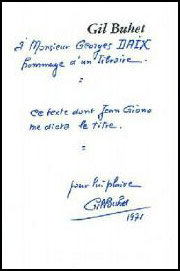 Gil Buhet
à Monsieur Georges DAIX
hommage d'un libraire.
=
Ce texte dont Jean Giono
me dicta le titre.
=
pour lui plaire
Gil Buhet
1971